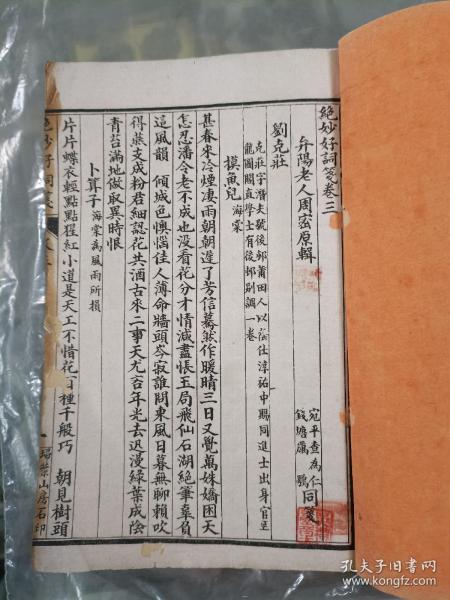 絕妙好詞箋卷三
弁陽老人周密原輯
宛平查為仁
錢塘厲鶚
同箋
劉克莊
克莊字潛夫號後邨莆田人以蔭仕淳祐中賜同進士出身官至
龍圖閣直學士有後邨别調一卷
摸魚兒海棠
甚春來冷煙淒雨朝朝遲了芳信驀然作暖晴三日又覺萬姝嬌困天
怎忍潘令老不成也没看花分才情減盡悵玉局飛仙石湖絕筆辜負
這風韻　傾城色懊惱佳人薄命牆頭岑寂誰問東風日暮無聊賴吹
得燕支成粉君細認花共酒古來二事天尤吝年光去迅漫綠葉成陰
青苔滿地做取異時恨
卜算子海棠為風雨所損
片片蝶衣輕點點猩紅小道是天工不惜花百種千般巧　朝見樹頭
絕妙好詞箋
一
掃葉山房石印
孔夫子旧书网
kongfz.com